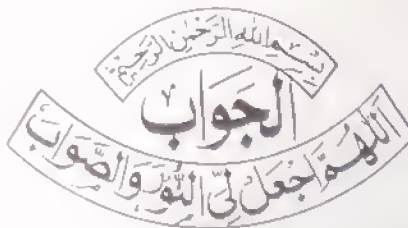 بِسْمِ اللهِ الرَّحْمٰنِ الرَّحِيْمِ
الجَوَاب
اَللّٰهُمَّ اجْعَلْ لِيَ النُّوْرَ وَالصَّوَابَ